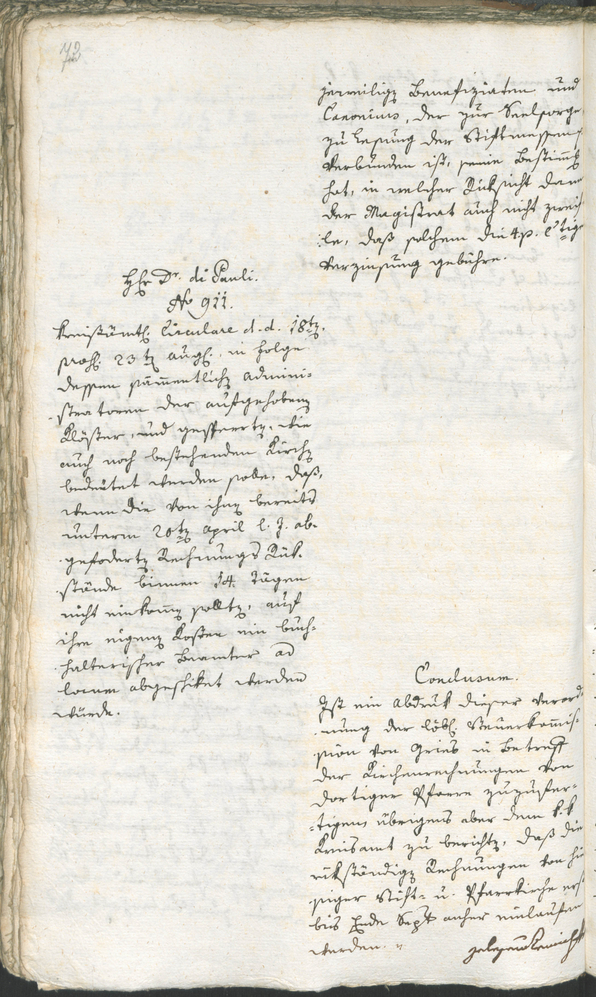 72
jeweilige Benefiziaten und
Canonicus, der zur Seelsorge
zu Lesung der Stiftmessen
verbunden ist, seine Bestim̄g
hat, in welcher Rüksicht dann
der Magistrat auch nicht zwei
le, daß solchem die 4 p. Ctige
Verzinsung gebühre.
Hℓ Dr. di Pauli.
No 911.
Kreisämtl. Circulare d. d. 18t
praes. 23t Aug., in Folge
dessen sämmentliche Admini-
stratoren der aufgehobene
Klöster, und gesperrte, wie
auch noch bestehenden Kirche
bedeutet werden solle, daß,
wenn die von ihne bereits
unterm 20te April l. J. ab-
gefoderte Rechnungs Rük-
stände binnen 14 Tägen
nicht einkom̄e sollte, auf
ihre eigene Kosten ein buch-
halterischer Beamter ad
locum abgeschiket werden
würde.
Conclusum.
Ist ein Abdruk dieser Verord
nung der löbl. Steuerkom̄is-
sion von Gries in Betreff
der Kirchenrechnungen von
dortiger Pfarre zuzufer-
tigen übrigens aber dem k. k.
Kreisamt zu berichte, daß die
rükständige Rechnungen von hie
siger Stift- u. Pfarrkirche
bis Ende Sept anher einlaufen
werden.